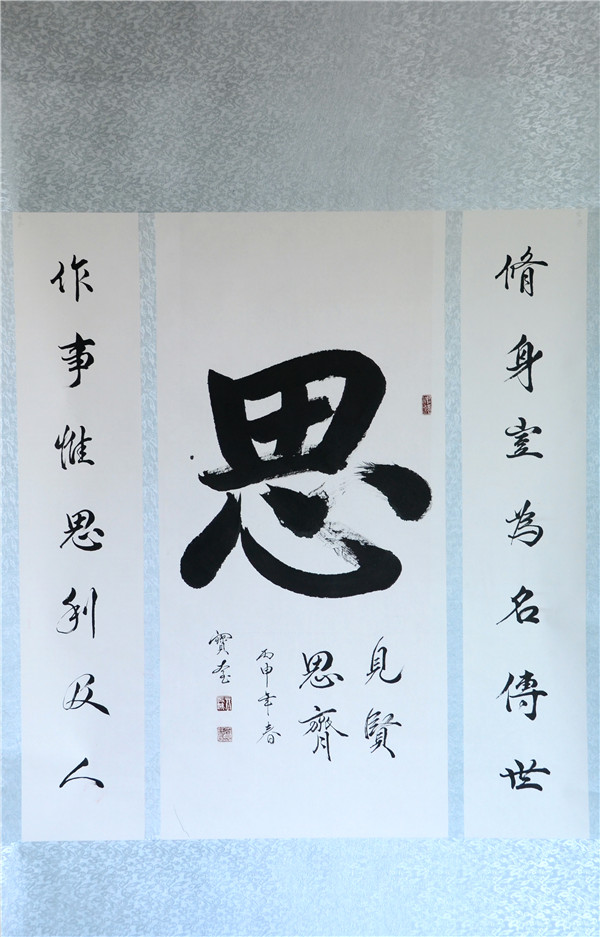 脩身豈為名傳世
思
見賢
思齊
丙申年春
寶奎
作事惟思利及人